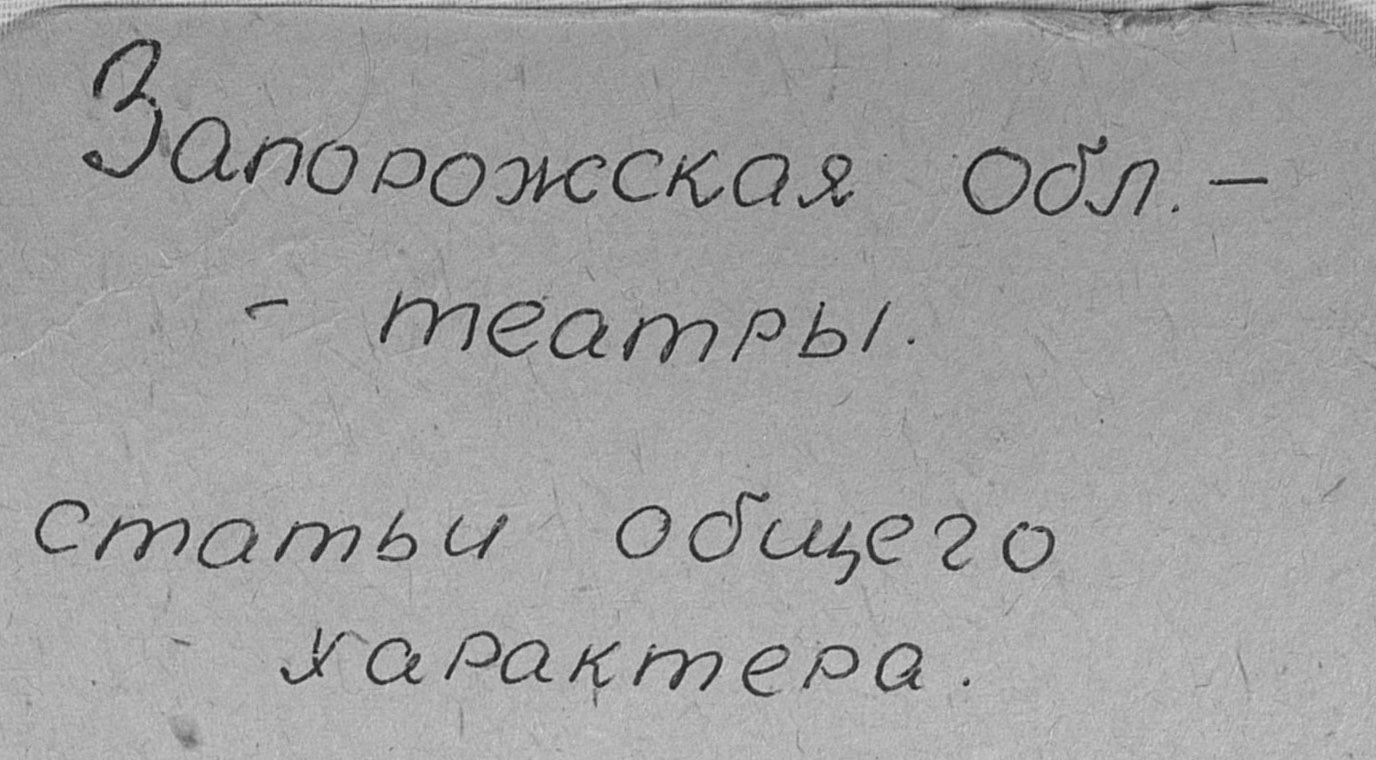 Запорожская обл. –
- театры.
статьи общего
характера.